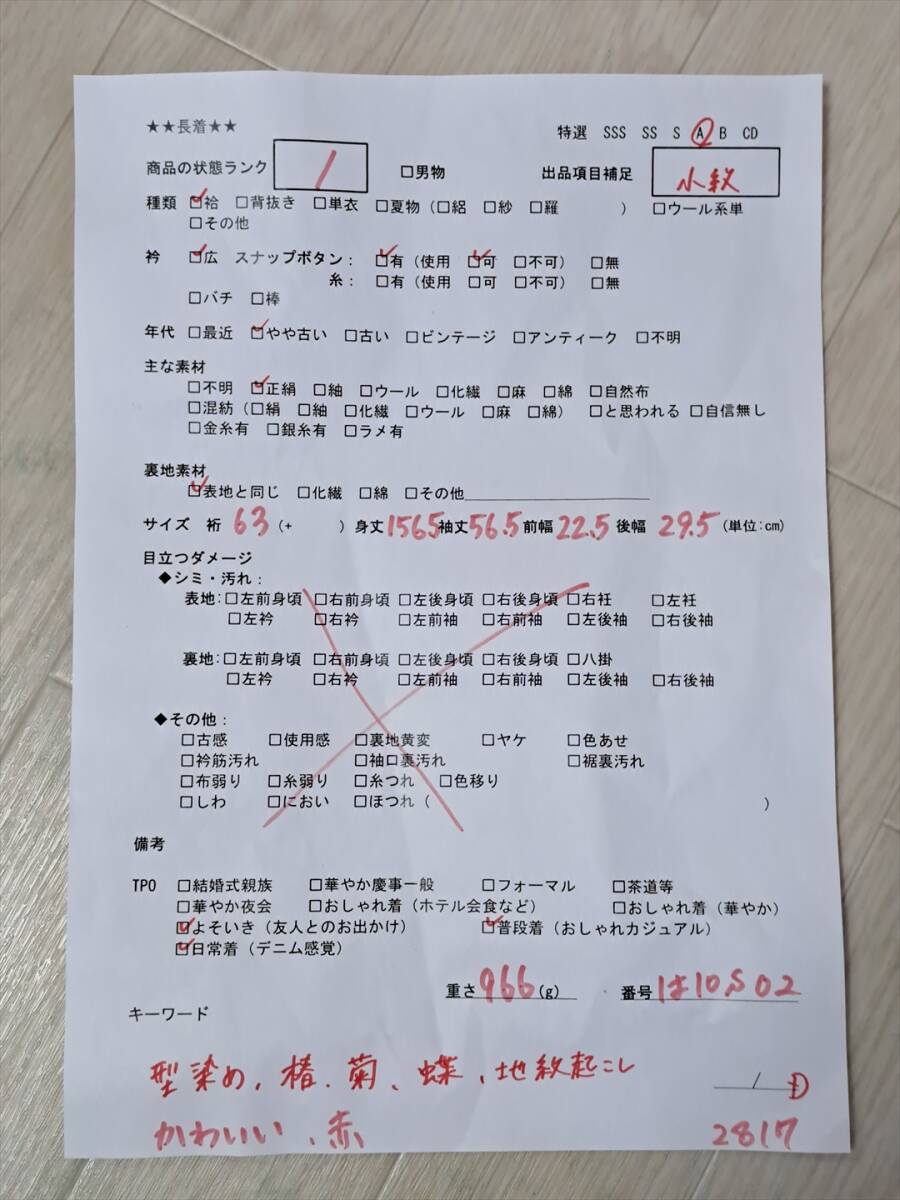 ★★長着★★
特選 SSS SS S A B CD
商品の状態ランク 1 □男物 出品項目補足 小紋
種類 □袷 □背抜き □単衣 □夏物（□絽 □紗 □羅 ） □ウール系単
□その他
衿 □広 スナップボタン： □有（使用 □可 □不可） □無
糸： □有（使用 □可 □不可） □無
□バチ □棒
年代 □最近 □やや古い □古い □ビンテージ □アンティーク □不明
主な素材
□不明 □正絹 □紬 □ウール □化繊 □麻 □綿 □自然布
□混紡（□絹 □紬 □化繊 □ウール □麻 □綿） □と思われる □自信無し
□金糸有 □銀糸有 □ラメ有
裏地素材
□表地と同じ □化繊 □綿 □その他
サイズ 裄 63 (+ ) 身丈 156.5 袖丈 56.5 前幅 22.5 後幅 29.5 (単位:cm)
目立つダメージ
◆シミ・汚れ：
表地：□左前身頃 □右前身頃 □左後身頃 □右後身頃 □右衽 □左衽
□左衿 □右衿 □左前袖 □右前袖 □左後袖 □右後袖
裏地：□左前身頃 □右前身頃 □左後身頃 □右後身頃 □八掛
□左衿 □右衿 □左前袖 □右前袖 □左後袖 □右後袖
◆その他：
□古感 □使用感 □裏地黄変 □ヤケ □色あせ
□衿筋汚れ □袖口裏汚れ □裾裏汚れ
□布弱り □糸弱り □糸つれ □色移り
□しわ □におい □ほつれ（ ）
備考
TPO □結婚式親族 □華やか慶事一般 □フォーマル □茶道等
□華やか夜会 □おしゃれ着（ホテル会食など） □おしゃれ着（華やか）
□よそいき（友人とのお出かけ） □普段着（おしゃれカジュアル）
□日常着（デニム感覚）
重さ 966 (g) 番号 1は10S02
キーワード
型染め、椿、菊、蝶、地紋起こし /
かわいい、赤 2817